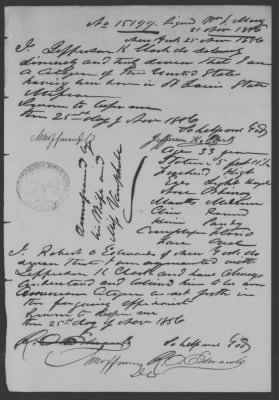 No 15199. Signd Wm L Marcy
21 Nov 1856
New York 25 Nov 1856
I Jefferson K Clark do solemly
sincerely and truly declare that I am
a Citizen of the United States
having been born in St Louis State
Missouri
Sworn to before me
this 25th day of Nov 1856
So help me God
Jefferson K. Clark
accompanied by
his Wife and
Age 33 years
Stature 5 feet 11 1/2
Forehead High
Eyes Light
Nose
Mouth Medium
Chin Round
Hair Sandy
Complexion
Face Oval
I Robert O Edwards of New York do
swear that I am acquainted with
Jefferson K Clark and have always
understood and believed him to be an
American Citizen as set forth in
the foregoing affidavit
Sworn to before me
this 25th day of Nov 1856
So help me God
R. O. Edwards